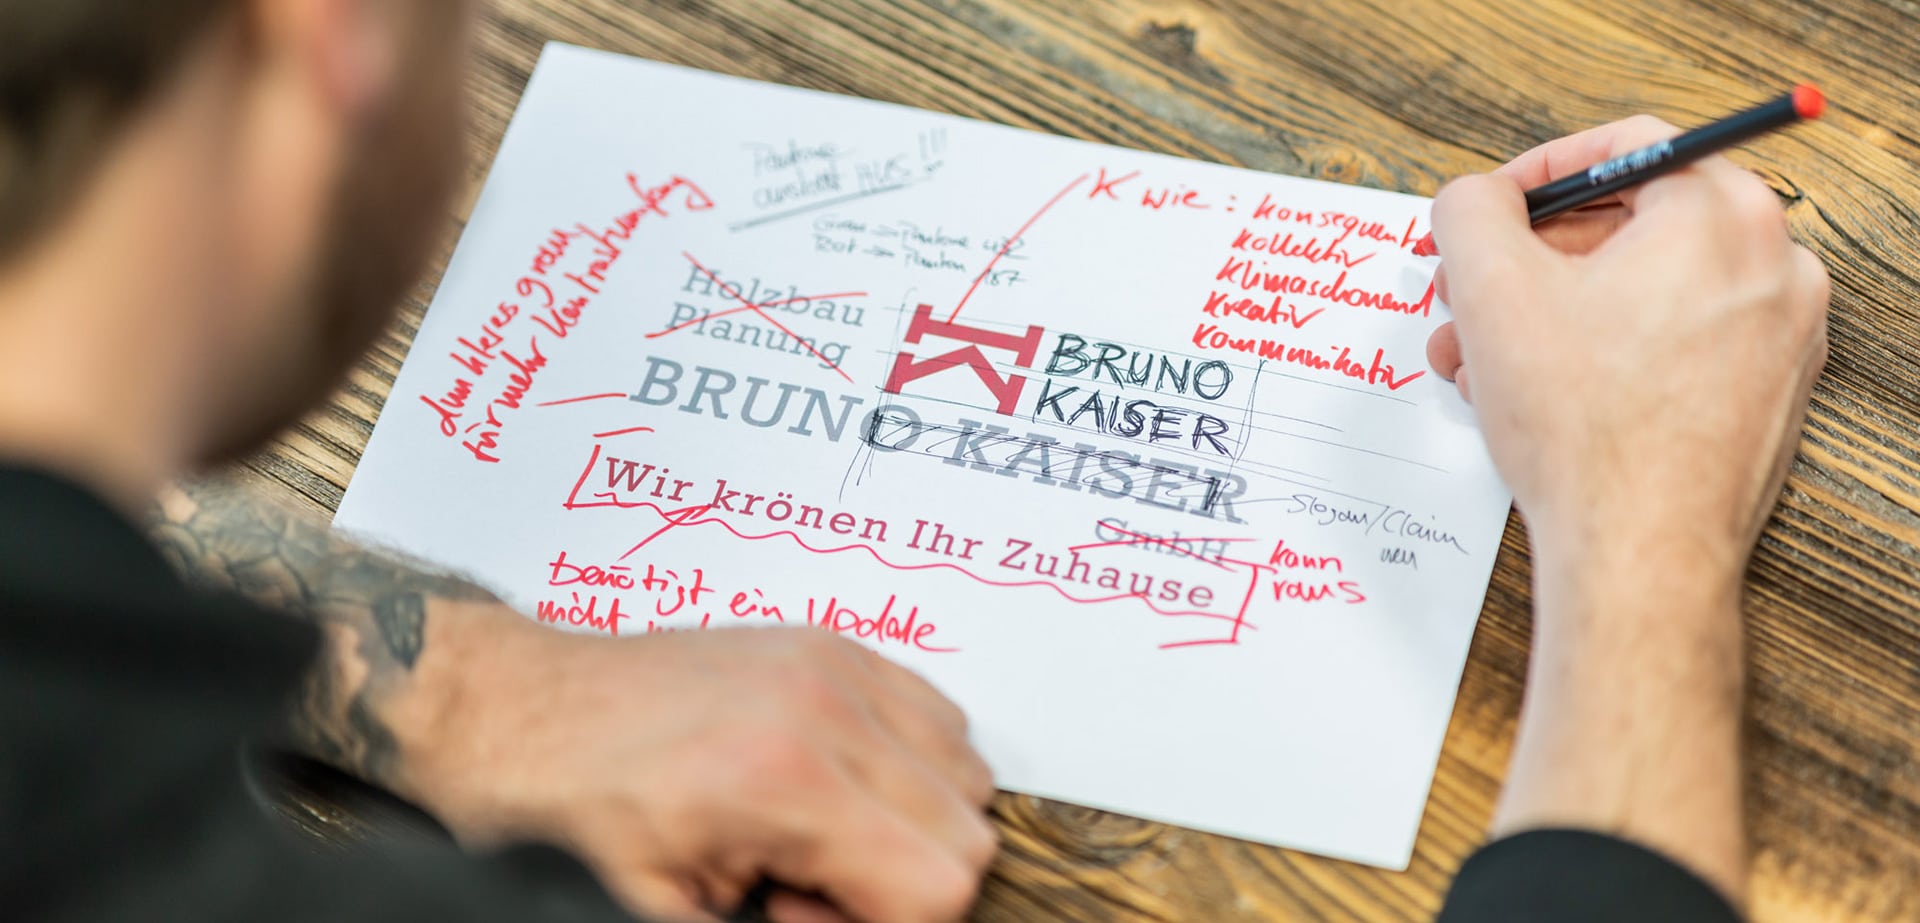 Pantone
anstatt HKS !!!
Grau -> Pantone 432
Rot -> Pantone 187
K wie : konsequent
kollektiv
klimaschonend
kreativ
kommunikativ
dunkleres grau
für mehr Kontrastumfang
Holzbau
Planung
BRUNO
KAISER
BRUNO KAISER
GmbH
kann
raus
Slogan/Claim
neu
Wir krönen Ihr Zuhause
benötigt ein Update
nicht